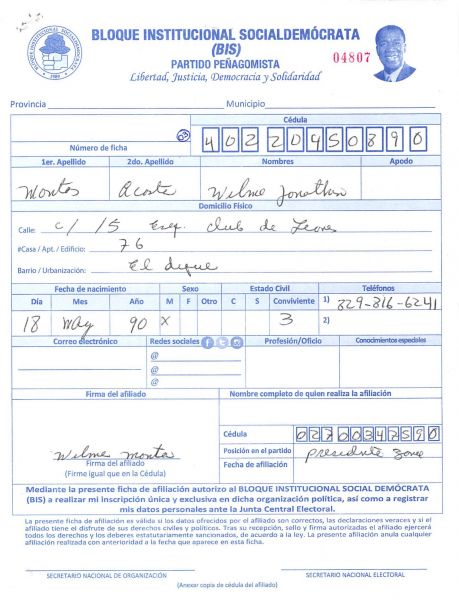 BLOQUE INSTITUCIONAL SOCIALDEMÓCRATA
(BIS)
PARTIDO PEÑAGOMISTA
Libertad, Justicia, Democracia y Solidaridad
04807
Provincia Municipio
Cédula
Número de ficha 40220450890
1er. Apellido 2do. Apellido Nombres Apodo
Montas Acosta Wilme Jonathan
Domicilio Físico
Calle: c/ 15 Esq. Club de Leones
#Casa / Apt. / Edificio: 76
Barrio / Urbanización: El dique
Fecha de nacimiento Sexo Estado Civil Teléfonos
Día Mes Año M F Otro C S Conviviente 1) 829-816-6241
18 May 90 X 3 2)
Correo electrónico Redes sociales Profesión/Oficio Conocimientos especiales
@
@
@
Firma del afiliado Nombre completo de quien realiza la afiliación
Cédula 02700347590
Wilme Monta Posición en el partido Presidente Zona
Firma del afiliado Fecha de afiliación
(Firme igual que en la Cédula)
Mediante la presente ficha de afiliación autorizo al BLOQUE INSTITUCIONAL SOCIAL DEMÓCRATA
(BIS) a realizar mi inscripción única y exclusiva en dicha organización política, así como a registrar
mis datos personales ante la Junta Central Electoral.
La presente ficha de afiliación es válida si los datos ofrecidos por el afiliado son correctos, las declaraciones veraces y si el
afiliado tiene el disfrute de sus derechos civiles y políticos. Tras su recepción, sello y firma autorizados el afiliado ejercerá
todos los derechos y los deberes estatutariamente sancionados, de acuerdo a la ley. La presente afiliación anula cualquier
afiliación realizada con anterioridad a la fecha que aparece en esta ficha.
SECRETARIO NACIONAL DE ORGANIZACIÓN SECRETARIO NACIONAL ELECTORAL
(Anexar copia de cédula del afiliado)